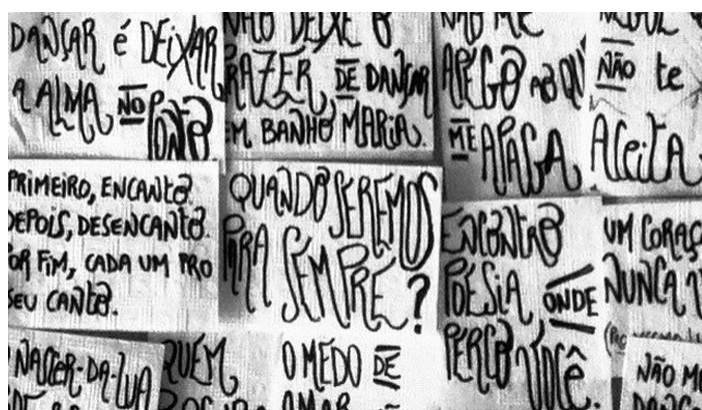 DANÇAR é DEIXAR
A ALMA NO
PONTO
NÃO DEIXE O
PRAZER DE DANÇAR
EM BANHO MARIA.
NÃO ME
APEGO AO QU
ME APAGA
NÃO te
ACeitA
PRIMEIRO, ENCANTO.
DEPOIS, DESENCANTO.
POR FIM, CADA UM PRO
SEU CANTO.
QUANDO SEREMOS
PARA SEMPRE?
ENCONTRO
POESIA ONDE
PERCO VOCÊ.
UM CORAÇ
NUNCA
NASCER-DA-LUA
QUEM
O MEDO DE
AMAR É
NÃO M